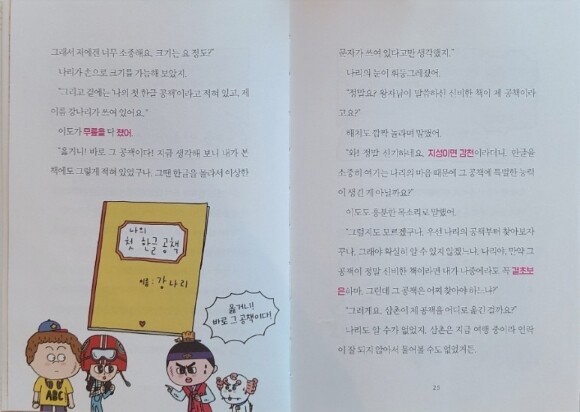 그래서 저에겐 너무 소중해요. 크기는 요 정도?"
나리가 손으로 크기를 가늠해 보았지.
"그리고 겉에는 '나의 첫 한글 공책'이라고 적혀 있고, 제
이름 강나리가 쓰여 있어요."
이도가 무릎을 탁 쳤어.
"옳거니! 바로 그 공책이다! 지금 생각해 보니 내가 본
책에도 그렇게 적혀 있었구나. 그땐 한글을 몰라서 이상한
나의
첫 한글 공책
이름 : 강나리
옳거니!
바로 그 공책이다!
ABC
문자가 쓰여 있다고만 생각했지."
나리의 눈이 휘둥그레졌어.
"정말요? 왕자님이 말씀하신 신비한 책이 제 공책이라
고요?"
해치도 깜짝 놀라며 말했어.
"와! 정말 신기하네요. 지성이면 감천이라더니, 한글을
소중히 여기는 나리의 마음 때문에 그 공책에 특별한 능력
이 생긴 게 아닐까요?"
이도도 흥분한 목소리로 말했어.
"그럴지도 모르겠구나. 우선 나리의 공책부터 찾아보자
꾸나. 그래야 확실히 알 수 있지 않겠느냐. 나리야, 만약 그
공책이 정말 신비한 책이라면 내가 나중에라도 꼭 결초보
은하마. 그런데 그 공책은 어찌 찾아야 하느냐?"
"그러게요. 삼촌이 제 공책을 어디로 옮긴 걸까요?"
나리도 알 수가 없었지. 삼촌은 지금 여행 중이라 연락
이 잘 되지 않아서 물어볼 수도 없었거든.
23